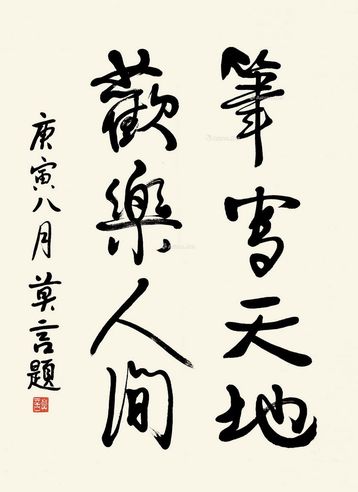 筆寫天地
歡樂人间
庚寅八月莫言題